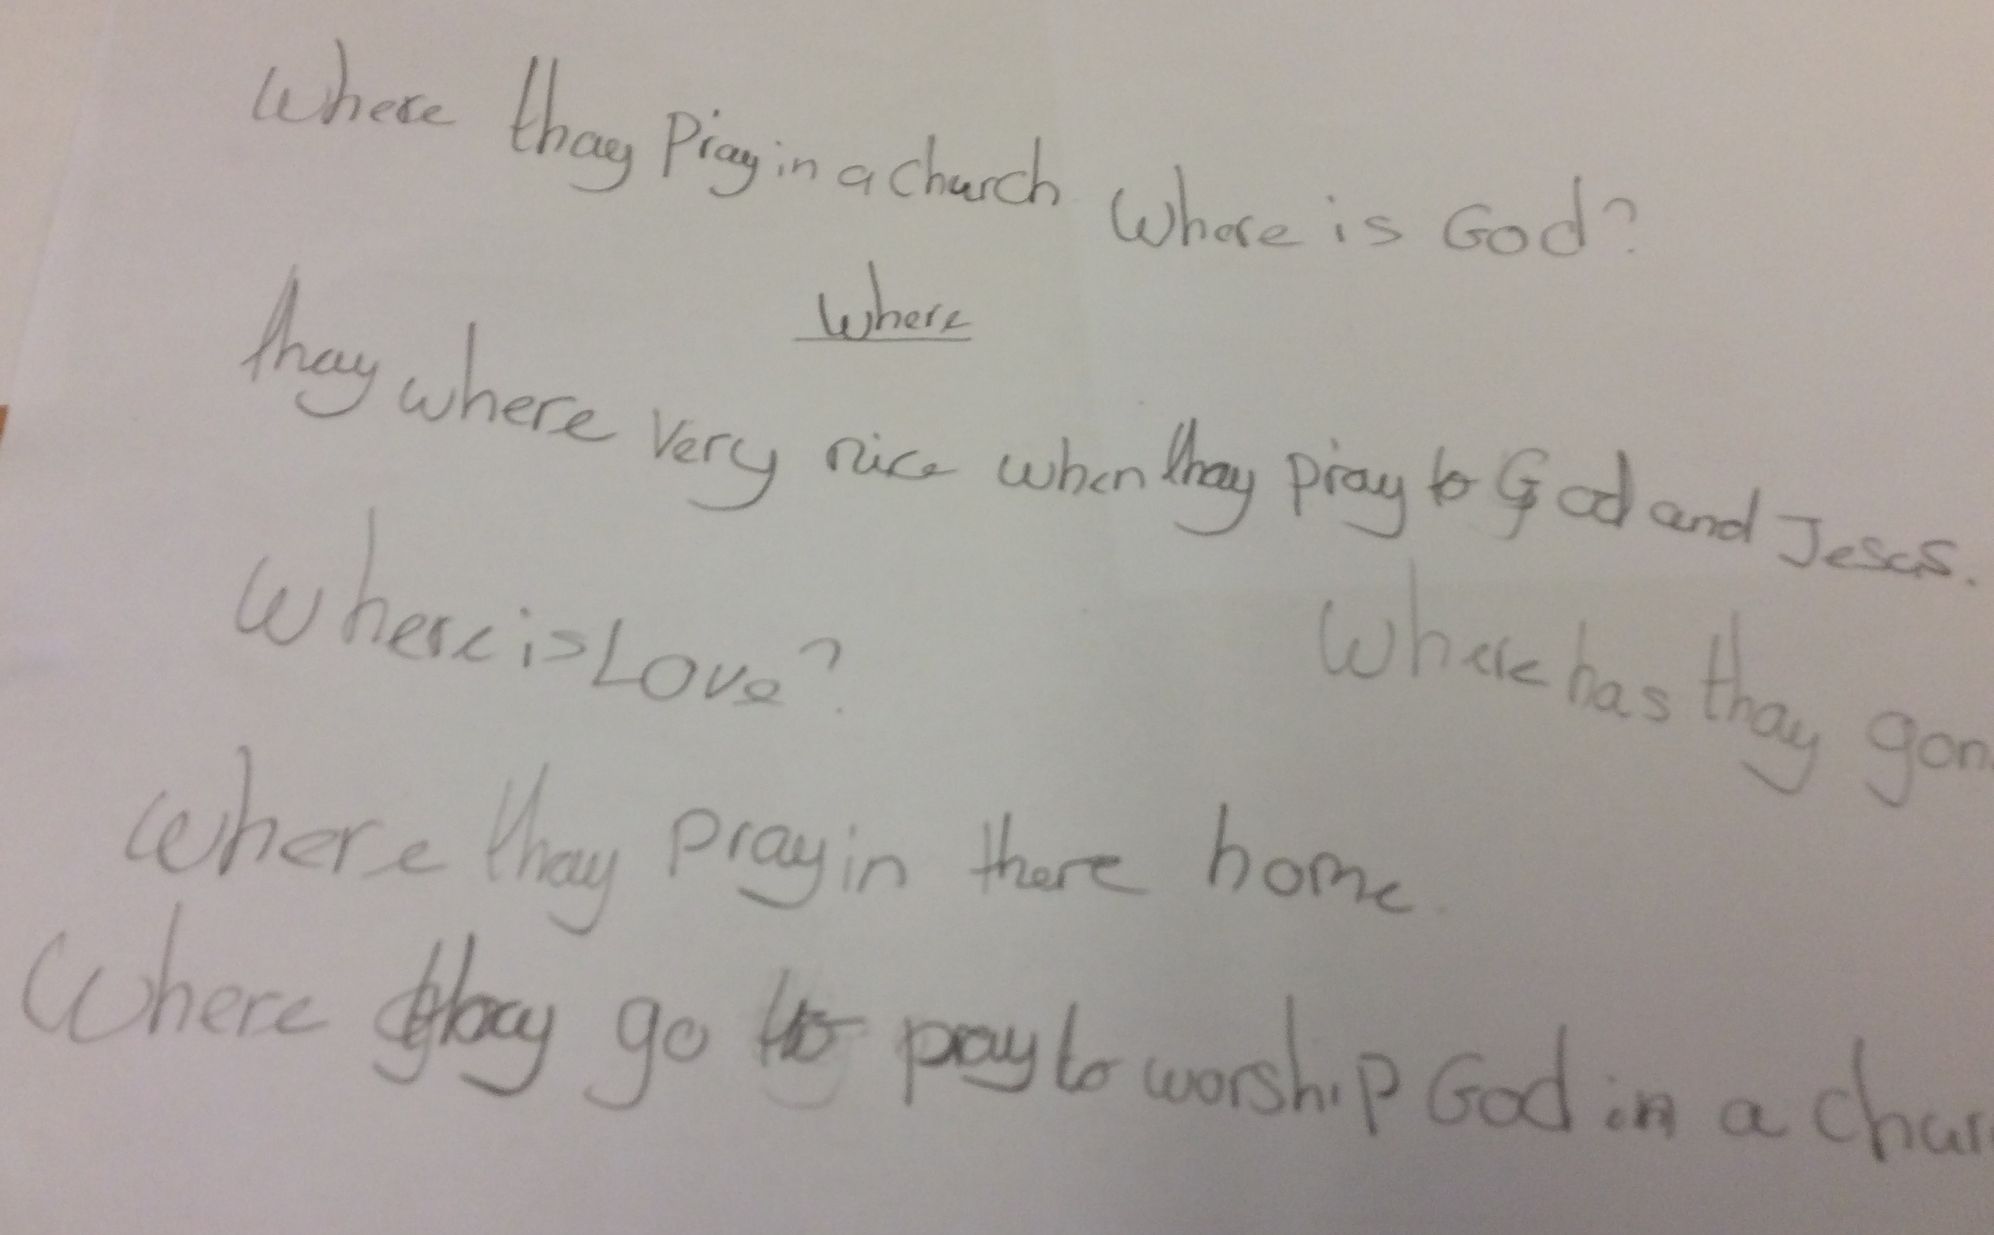 Where thay Pray in a church Where is God?
Where
thay where very nice when thay pray to God and Jesus.
Where is Love?
Where has thay gon
Where thay pray in there home.
Where thay go to pray to worship God in a chur